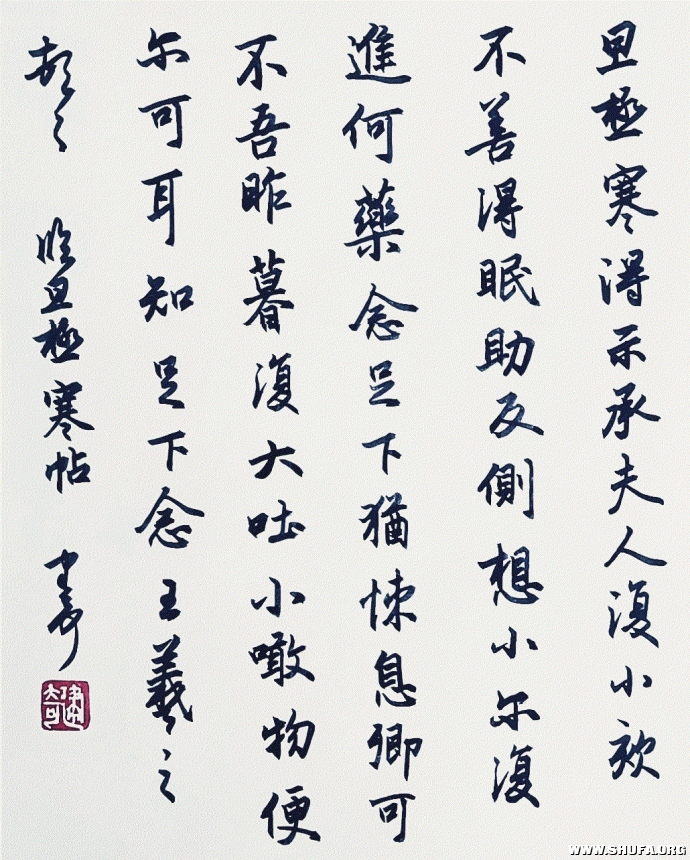 旦極寒得示承夫人復小欬
不善得眠助反側想小尔復
進何藥念足下猶悚息卿可
不吾昨暮復大吐小噉物便
尔可耳知足下念王羲之
臨旦極寒帖
WWW.SHUFA.ORG